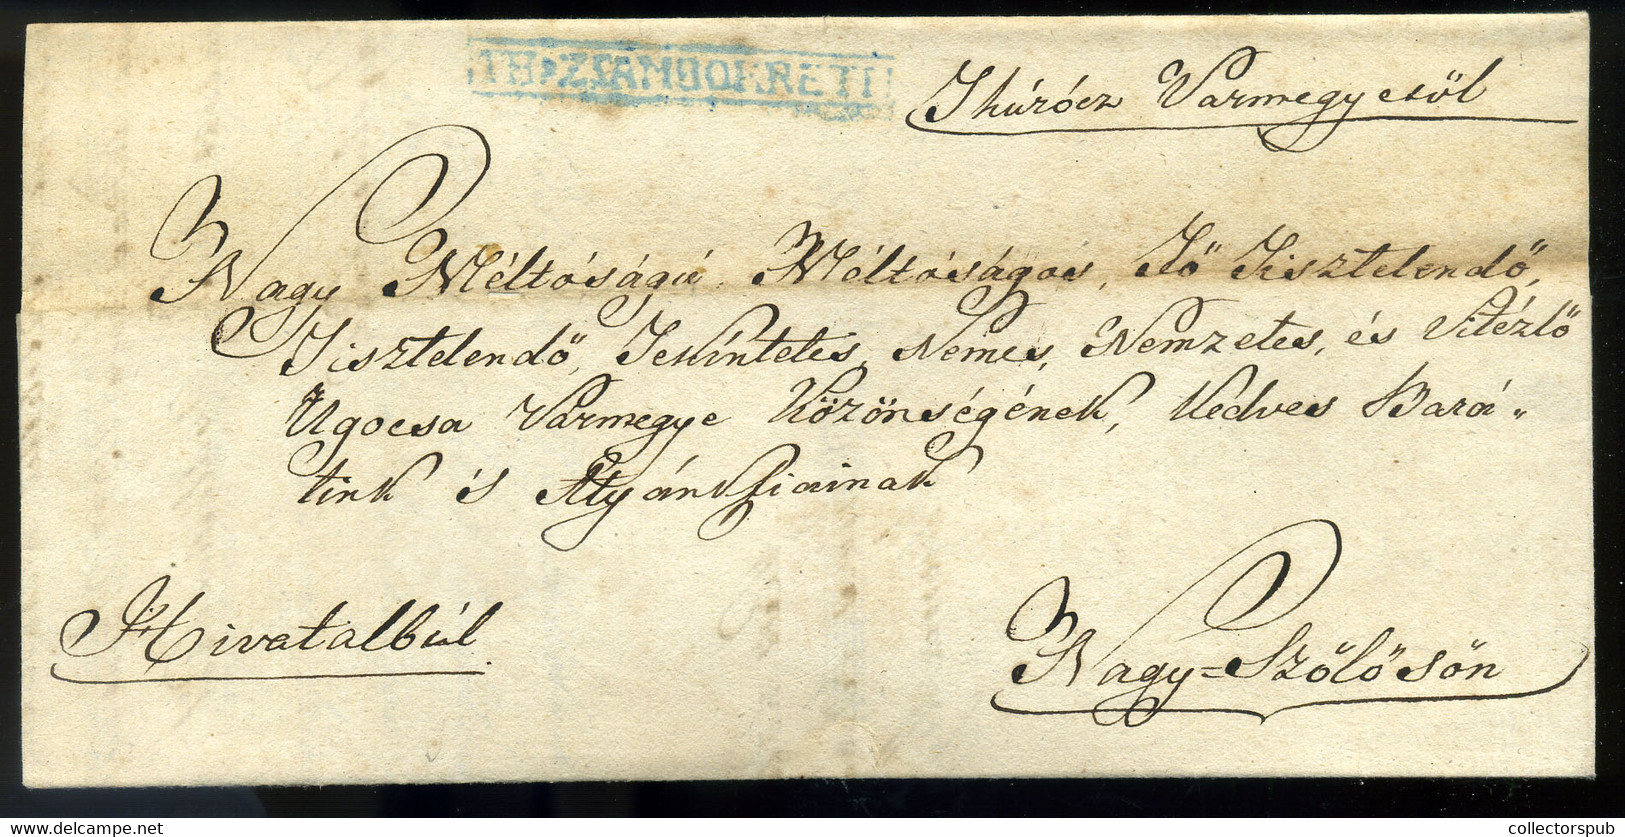 TH:ZSAMBOKRETH
Thúrócz Varmegyesöl
Nagy Méltóságú, Méltóságos, Fő Tisztelendő,
Tisztelendő, Tekíntetes, Nemes, Nemzetes, és Vitézlő
Ugocsa Varmegye Közönségének, Kedves Bará„
tink és Atyánkfiainak
Hivatalbúl.
Nagy=Szőlősön
collectorspub